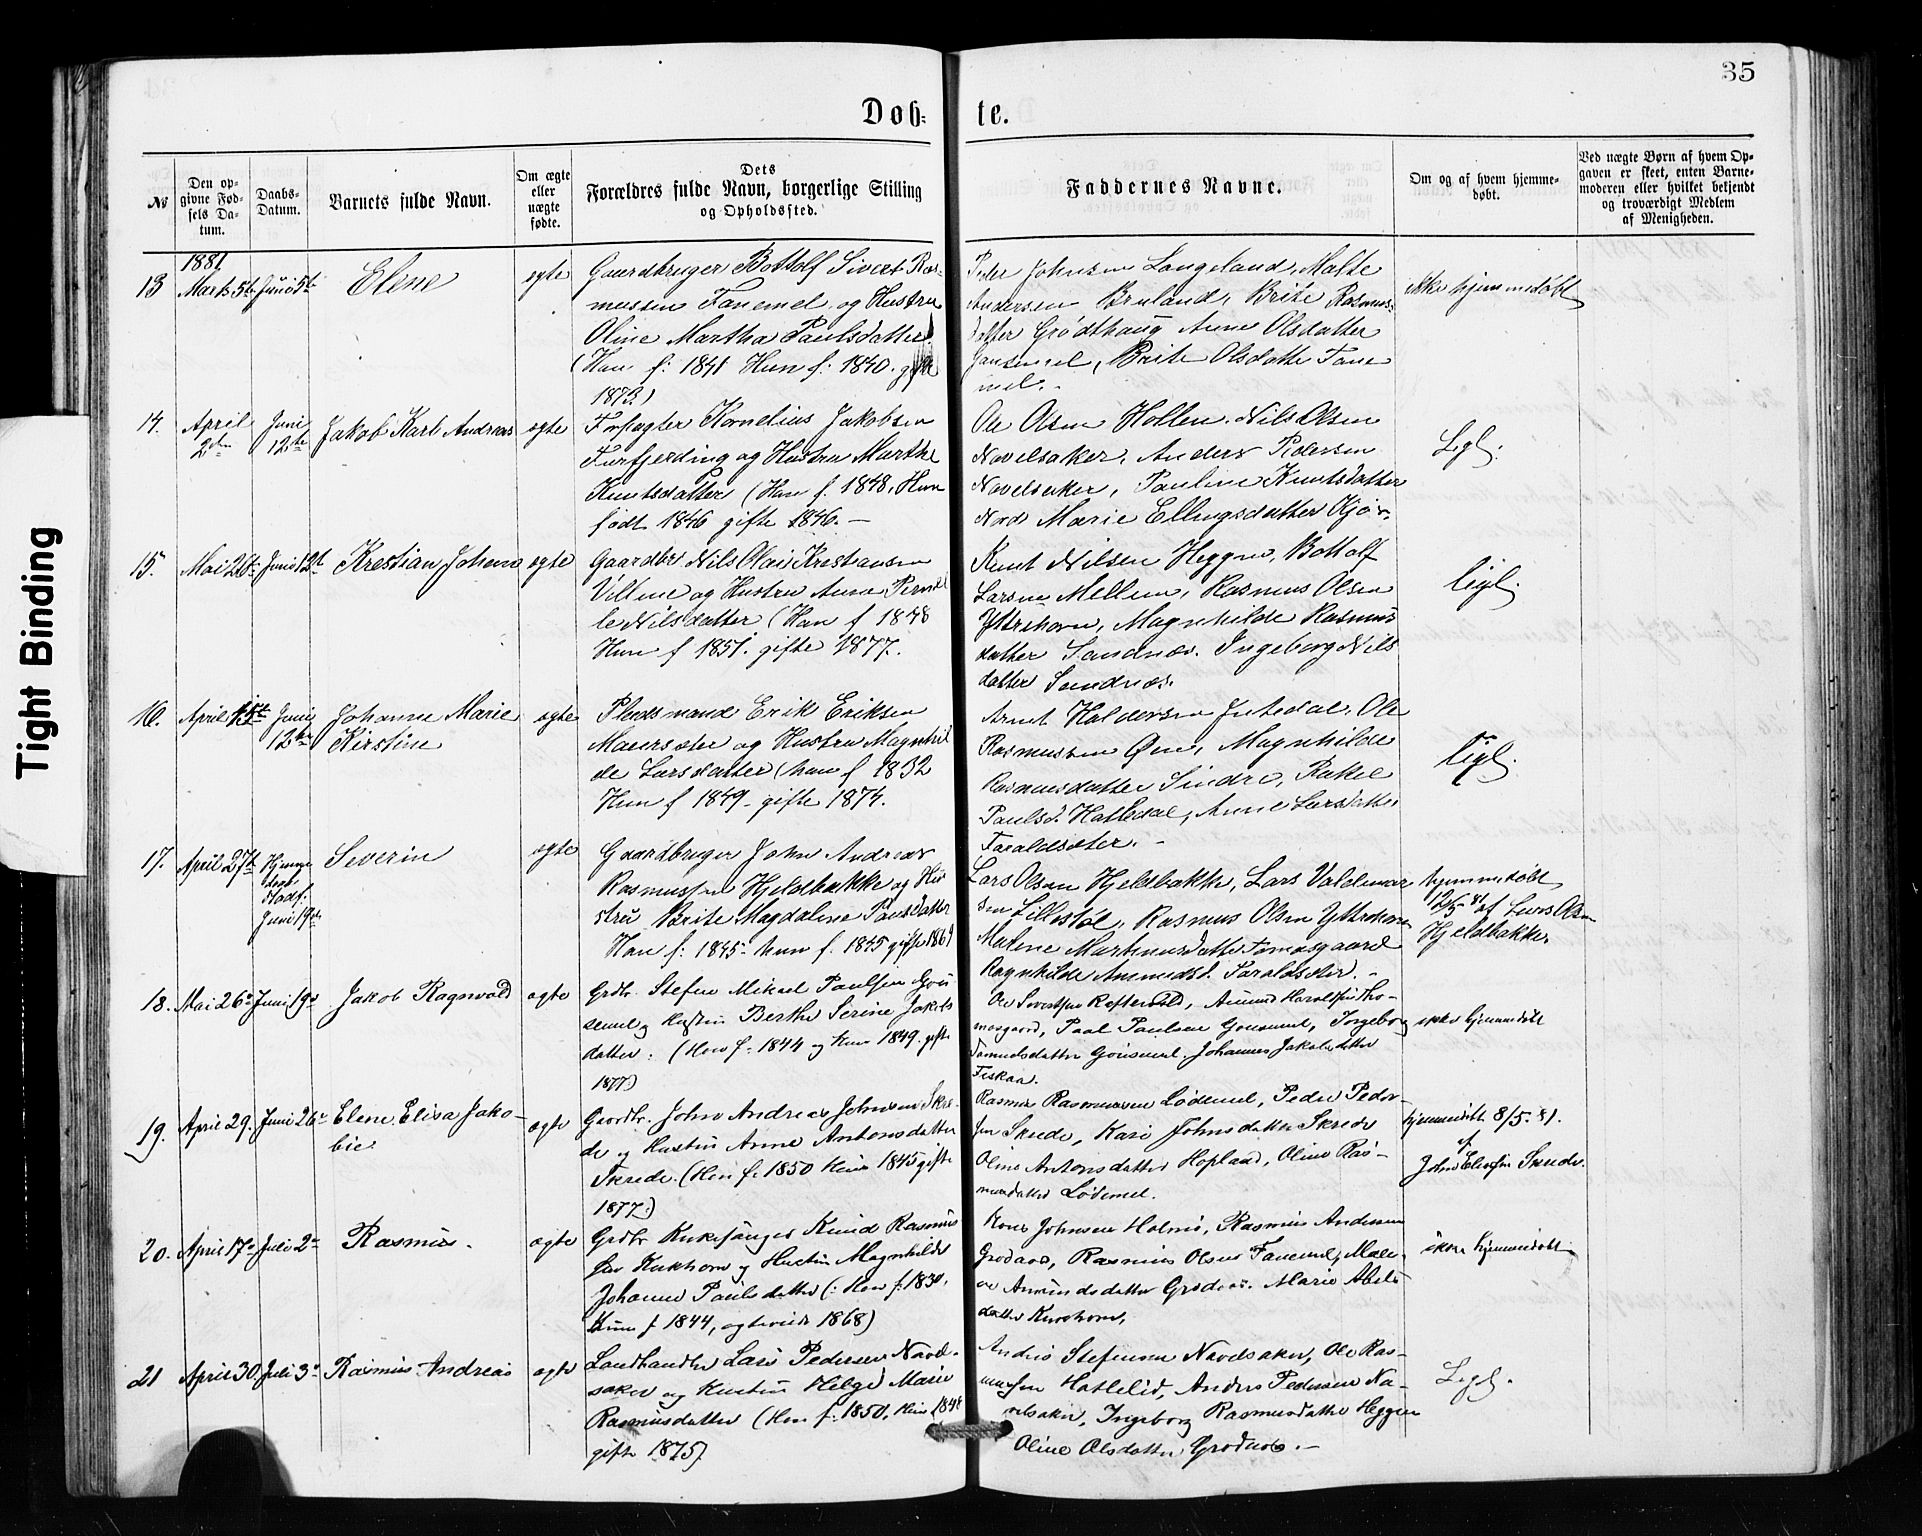 35
Døb-
te.
Tight Binding
№
Den op-
givne Fød-
sels Da-
tum.
Daabs-
Datum.
Barnets fulde Navn.
Om ægte
eller
uægte
fødte.
Dets
Forældres fulde Navn, borgerlige Stilling
og Opholdssted.
Faddernes Navne.
Om og af hvem hjemme-
døbt.
Ved uægte Børn af hvem Op-
gaven er skeet, enten Barne-
moderen eller hvilket bekjendt
og troværdigt Medlem
af Menigheden.
1881
13 Marts 5te Juni 5te Elene ægte
Gaardbruger Bottolf Sivert Ras-
mussen Fanemel og Hustru
Oline Martha Paulsdatter
(Han f: 1841 Hun f: 1840. gifte
1873)
Peder Johnsen Langeland, Malte
Andersen Bruland, Brite Rasmus-
datter Grødthaug Anne Olsdatter
Brite Olsdatter Fane
mel.
ikke hjemmedøbt
14. April 2den Juni 12te Jakob Karl Andreas ægte
Forpagter Kornelius Jakobsen
Furfjerding og Hustru Marthe
Knutsdatter (Han f. 1848, Hun
født 1846 gifte 1846. —
Ole Olsen Hollen. Nils Olsen
Navelsaker, Anders Pedersen
Navelsaker, Pauline Knutsdatter
Nord Marie Ellingsdatter
Ligl.
15. Mai 26t. Juni 12t Krestian Johan ægte
Gaardbr Nils Olai Krestiansen
og Hustru Anne Pernil
le Nilsdatter (Han f 1848
Hun f 1851. gifte 1877.
Knut Nilsen Heggen, Bottolf
Larsen Mellem, Rasmus Olsen
Yttrehorn, Magnhilde Rasmus
datter Sandnæs. Ingeborg Nils
datter Sandnæs.
ligl.
16. April Juni 12te Johanne Marie ægte
Kirstine
Plædsmand Erik Eriksen
og Hustru Magnhil
de Larsdatter (han f 1832
Hun f 1849. gifte 1874.
Arnt Haldorsen Ole
Rasmussen Øen, Magnhilde
Rasmusdatter Sindre, Rakel
Paulsd. Hatledal, Anne Larsdatter
Taraldsæter. —
ligl.
17. April 27te Hjemme
Stadf.
Juni 19de Severin ægte
Gaardbruger John Andreas
Rasmussen Hjeldbakke og Hu
stru Brite Magdalene Paulsdatter
Han f: 1845- hun f. 1845 gifte 1869
Lars Olsen Hjeldbakke, Lars Valdemar
sen Lillestøl, Rasmus Olsen Yttrehorn
Malene Martinusdatter Tomasgaard
Ragnhilde Amundsd. Taraldsæter. -
hjemmedøbt
12/5 81 af Lars Olsen
Hjeldbakke.
18. Mai 26de Juni 19de Jakob Ragnvald ægte
Grdbr. Stefen Mikael Paulsen Gou
semel og Hustru Berthe Serine Jakobs
datter. (Han f: 1844 og hun 1849. gifte
1877.)
Ole Severtsen Raftevold, Amund Haraldsen Tho-
masgaard, Paal Paulsen Gousemel, Ingeborg
datter Gousemel. Johanne Jakobsdatter
Fiskaa.
ikke hjemmedøbt
19. April 29. Juni 26de Elene Elisa Jako-
bie. ægte
Gaardbr. John Andreas Johnsen Skre-
de og Hustru Anne Antonsdatter
Skrede. (Han f: 1850 Hun 1845 gifte
1877.)
Rasmus Rasmussen Lødemel, Peder Peder-
sen Skrede, Kari Johnsdatter Skrede
Oline Antonsdatter Hopland, Oline Ras-
musdatter Lødemel.
hjemmedøbt 8/5. 81.
af
John Skrede.
20. April 17de Juli 2de Rasmus. ægte
Grdbr Kirkesanger Knud Rasmus
sen og Hustru Magnhilde
Johanne Paulsdatter (: Han f: 1830,
Hun f 1844, ægteviede 1868)
Johnsen Holmø, Rasmus Andersen
Grodaas, Rasmus Olsen Fanemel, Male-
ne Amundsdatter Grodaas. Marie Abels
datter
ikke hjemmedøbt
21 April 30. Juli 3de Rasmus Andreas ægte
Landhandler Lars Pedersen Navel-
saker og Hustru Helge Marie
Rasmusdatter (Han f: 1850, Hun 1848
gifte 1875)
Anders Stefensen Navelsaker, Ole Ras-
mussen Hatlelid, Anders Pedersen Na-
velsaker, Ingeborg Rasmusdatter Heggen
Oline Olsdatter Grodaas. —
Ligl.